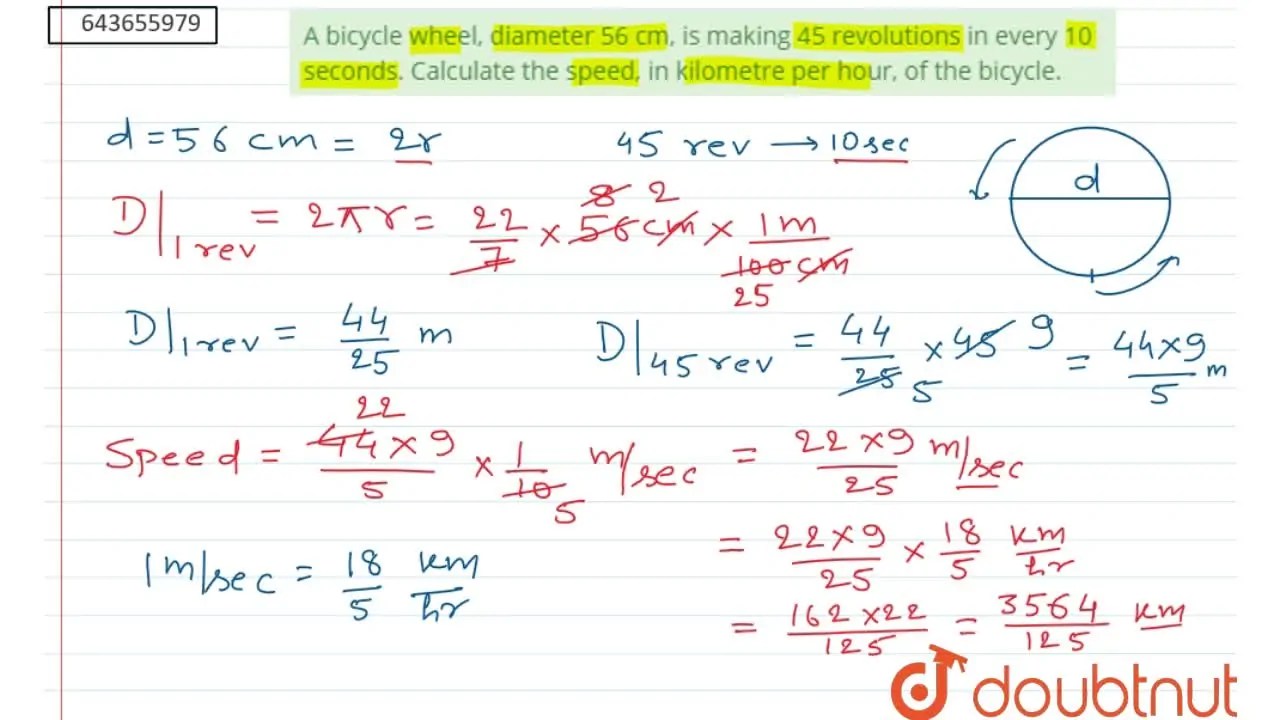 643655979
A bicycle wheel, diameter 56 cm, is making 45 revolutions in every 10
seconds. Calculate the speed, in kilometre per hour, of the bicycle.
d = 56 cm = 2r
45 rev → 10 sec
d
D|1 rev = 2πr = 22/7 × 56 cm × 1m/100 cm
8 2
25
D|1 rev = 44/25 m
D|45 rev = 44/25 × 45 9 = 44×9/5 m
5
22
Speed = 44×9/5 × 1/10 m/sec = 22×9/25 m/sec
5
1 m/sec = 18/5 km/hr
= 22×9/25 × 18/5 km/hr
= 162×22/125 = 3564/125 km
doubtnut